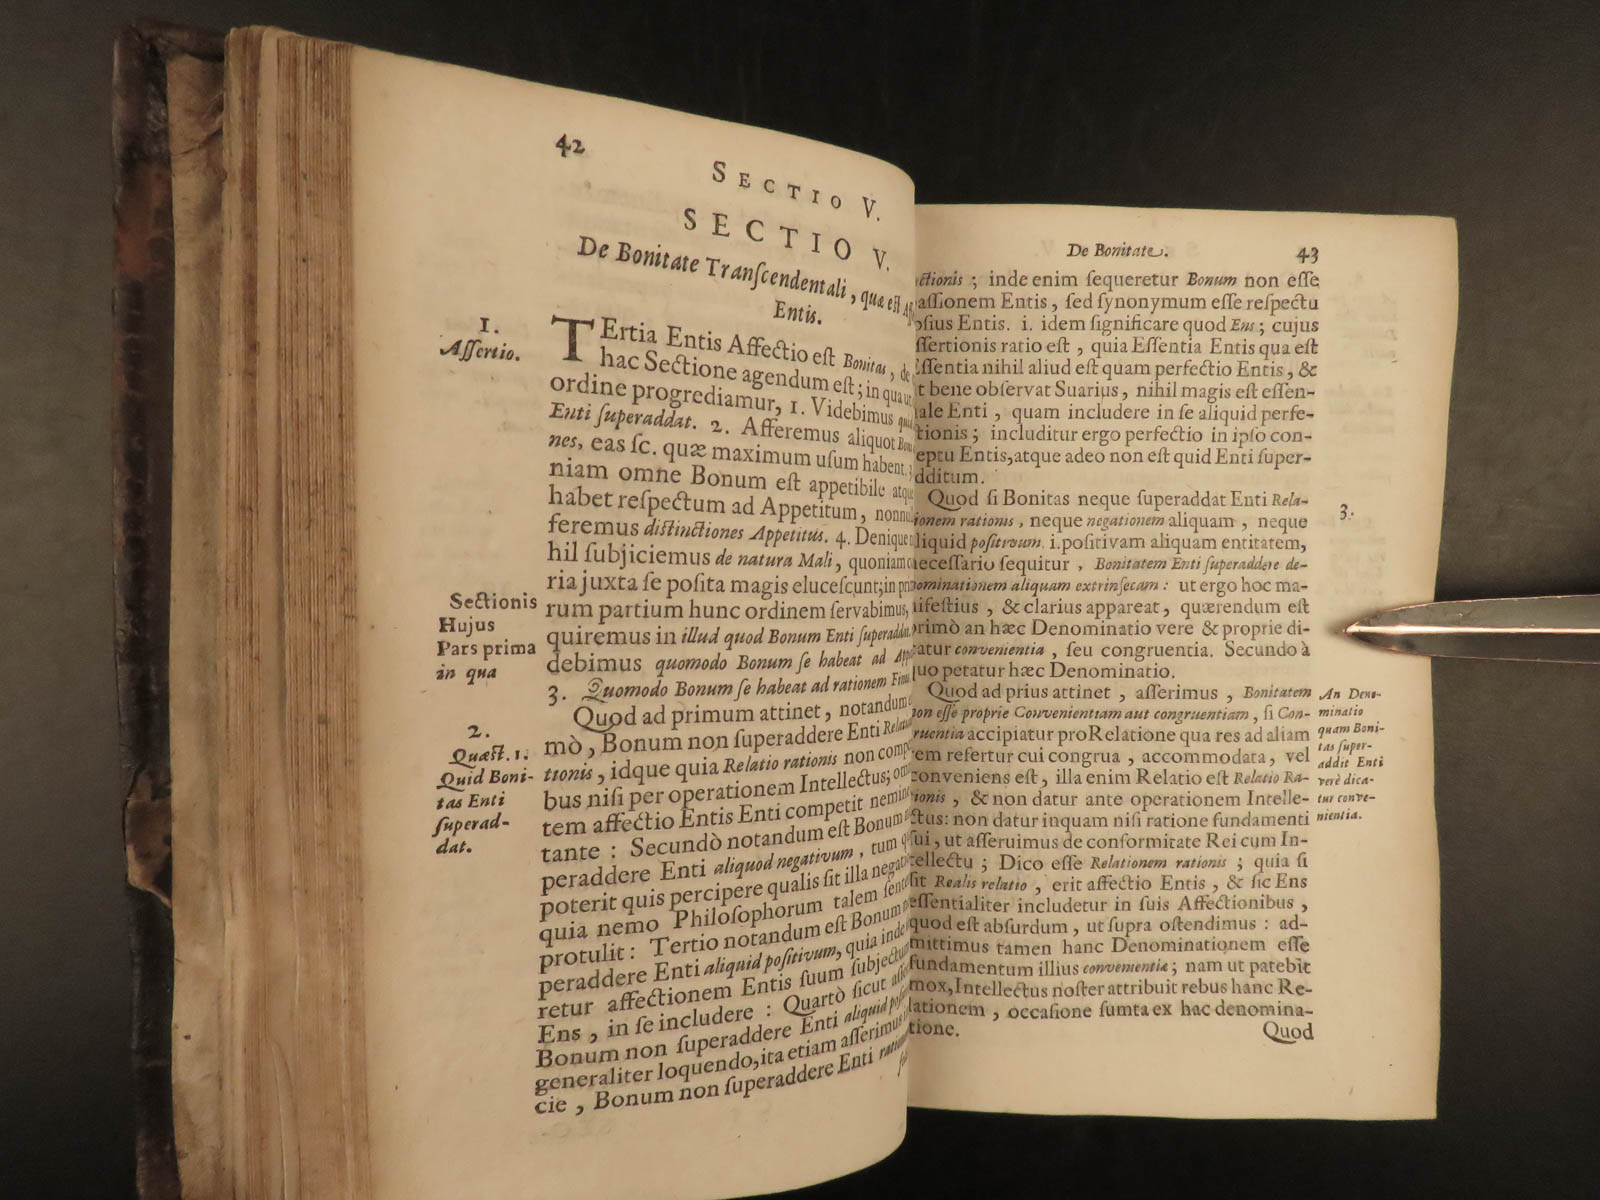 42
SECTIO V.
SECTIO V.
De Bonitate Tranſcendentali, quæ eſt
Entis.
1.
Aſſertio.
TErtia Entis Affectio eſt Bonitas, de
hac Sectione agendum eſt; in qua ut
ordine progrediamur, 1. Videbimus
Enti ſuperaddat. 2. Afferemus aliquot
nes, eas ſc. quæ maximum uſum habent.
niam omne Bonum eſt appetibile
habet reſpectum ad Appetitum,
feremus diſtinctiones Appetitus. 4. Denique
hil ſubjiciemus de natura Mali, quoniam
ria juxta ſe poſita magis eluceſcunt; in
rum partium hunc ordinem ſervabimus,
quiremus in illud quod Bonum Enti
debimus quomodo Bonum ſe habeat ad
3. Quomodo Bonum ſe habeat ad rationem
Sectionis
Hujus
Pars prima
in qua
2.
Quæſt. 1.
Quid Boni-
tas Enti
ſuperad-
dat.
Quod ad primum attinet,
mò, Bonum non ſuperaddere Enti
tionis, idque quia Relatio rationis non
bus niſi per operationem Intellectus;
tem affectio Entis Enti competit
tante: Secundò notandum eſt Bonum
peraddere Enti aliquod negativum, tum
poterit quis percipere qualis ſit illa
quia nemo Philoſophorum talem
protulit: Tertio notandum eſt Bonum
peraddere Enti aliquid poſitivum, quia
retur affectionem Entis ſuum
Ens, in ſe includere: Quartò ſicut
Bonum non ſuperaddere Enti aliquid
generaliter loquendo, ita etiam aſſerimus
cie, Bonum non ſuperaddere Enti
De Bonitate. 43
inde enim ſequeretur Bonum non eſſe
Entis, ſed ſynonymum eſſe reſpectu
Entis. i. idem ſignificare quod Ens; cujus
ratio eſt, quia Eſſentia Entis qua eſt
Eſſentia nihil aliud eſt quam perfectio Entis, &
bene obſervat Suarius, nihil magis eſt eſſen-
Enti, quam includere in ſe aliquid perfe-
ctionis; includitur ergo perfectio in ipſo con-
Entis, atque adeo non eſt quid Enti ſuper-
additum.
Quod ſi Bonitas neque ſuperaddat Enti Rela-
tionem rationis, neque negationem aliquam, neque
aliquid poſitivum. i. poſitivam aliquam entitatem,
neceſſario ſequitur, Bonitatem Enti ſuperaddere de-
nominationem aliquam extrinſecam: ut ergo hoc ma-
nifeſtius, & clarius appareat, quærendum eſt
primò an hæc Denominatio vere & proprie di-
catur convenientia, ſeu congruentia. Secundo à
quo petatur hæc Denominatio.
3.
Quod ad prius attinet, aſſerimus, Bonitatem
non eſſe proprie Convenientiam aut congruentiam, ſi Con-
gruentia accipiatur pro Relatione qua res ad aliam
rem refertur cui congrua, accommodata, vel
conveniens eſt, illa enim Relatio eſt Relatio Ra-
tionis, & non datur ante operationem Intelle-
ctus: non datur inquam niſi ratione fundamenti
ſui, ut aſſeruimus de conformitate Rei cum In-
tellectu; Dico eſſe Relationem rationis; quia ſi
ſit Realis relatio, erit affectio Entis, & ſic Ens
eſſentialiter includetur in ſuis Affectionibus,
quod eſt abſurdum, ut ſupra oſtendimus: ad-
mittimus tamen hanc Denominationem eſſe
fundamentum illius convenientiæ; nam ut patebit
mox, Intellectus noſter attribuit rebus hanc Re-
lationem, occaſione ſumta ex hac denomina-
tione.
Quod
An Deno-
minatio
quam Boni-
tas ſuper-
addit Enti
verè dica-
tur conve-
nientia.